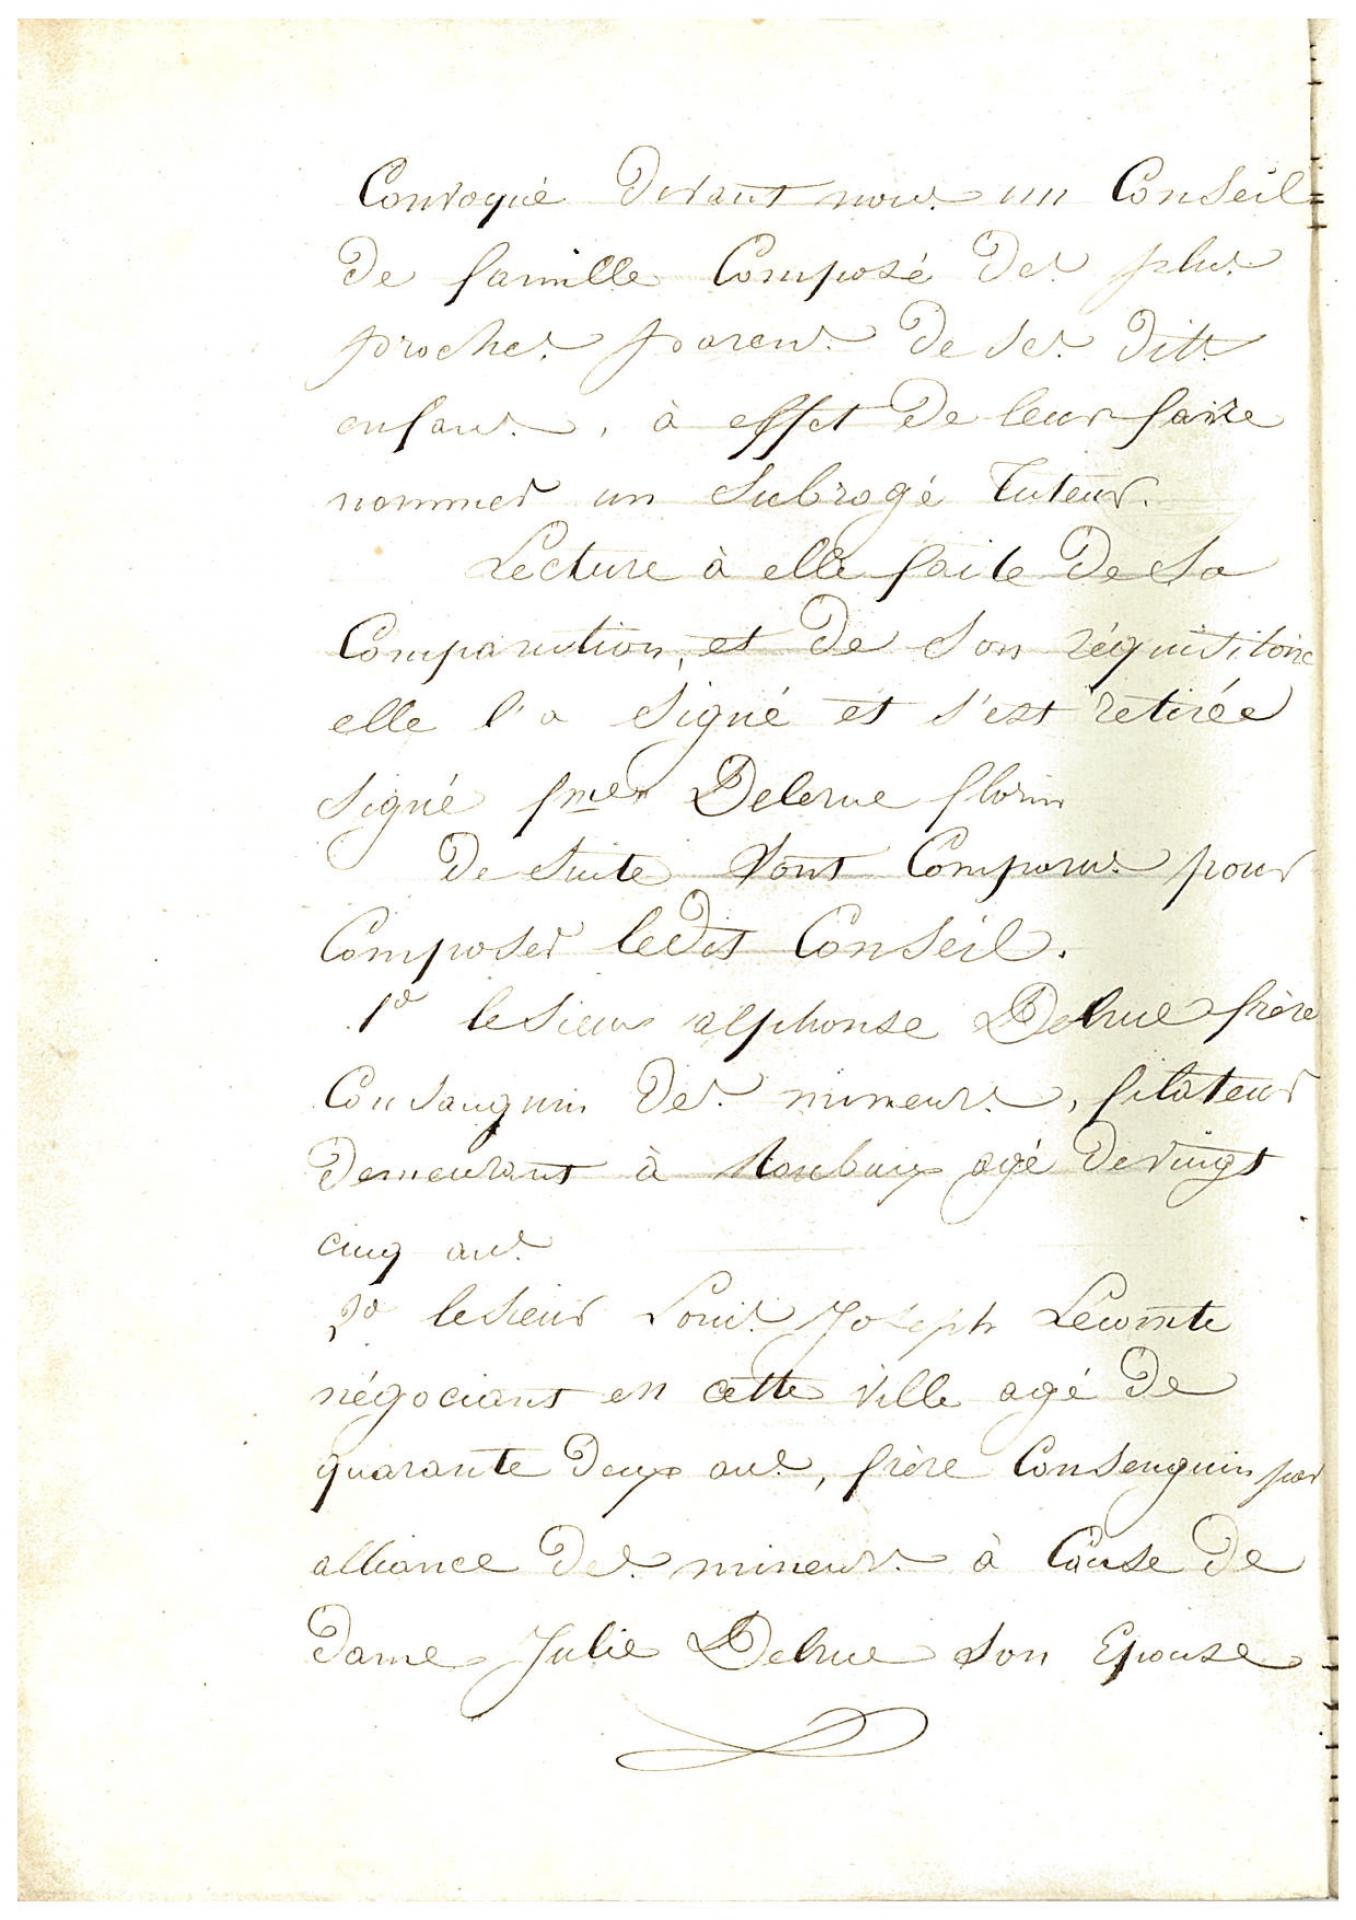 Convoqué devant nous un Conseil
de famille Composé des plus
proches parens de ses dits
enfans, à effet de leur faire
nommer un subrogé tuteur.
Lecture à elle faite de sa
Comparution, et de son réquisitoire
elle l'a signé et s'est retirée
signé fme Delerue florin
De suite sont Comparus pour
Composer ledit Conseil.
1o le sieur alphonse Delrue frère
Consanguin des mineurs, filateur
demeurant à Roubaix agé de vingt
cinq ans.
2o le sieur Louis Joseph Lecomte
négociant en cette ville agé de
quarante deux ans, frère Consenguin par
alliance des mineurs à Cause de
Dame Julie Delrue son Epouse